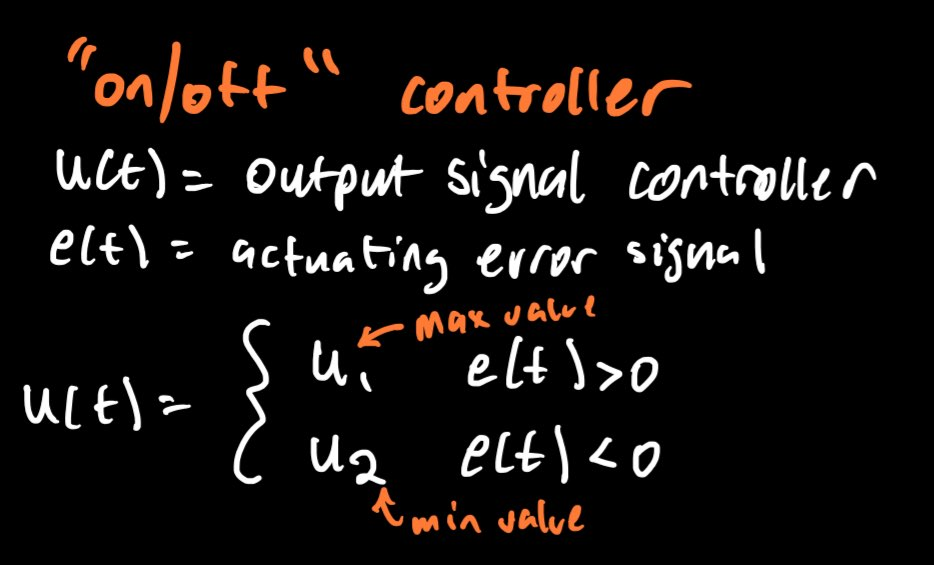 "on/off" controller
u(t) = output signal controller
e(t) = actuating error signal
u(t) = { u₁ ← max value e(t) > 0
u₂ e(t) < 0
↖ min value